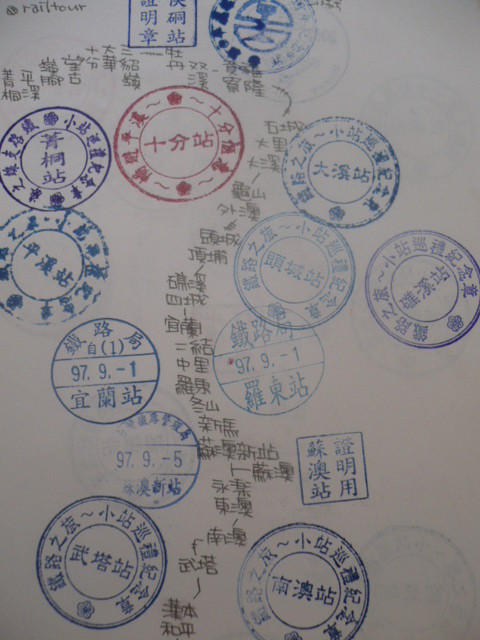 @railtour
硐站
證明章
十分
大華
三貂嶺
牡丹
雙溪
貢寮
福隆
菁桐
平溪
嶺腳
望古
石城
大里
大溪
龜山
外澳
頭城
頂埔
礁溪
四城
宜蘭
二結
中里
羅東
冬山
新馬
蘇澳新站
蘇澳
永樂
東澳
南澳
武塔
漢本
和平
小站巡禮紀念章
菁桐站
十分站
鐵路之旅~小站巡禮紀念章
大溪站
平溪站
鐵路之旅~小站巡禮紀念章
頭城站
鐵路之旅~小站巡禮紀念章
鐵路局
自(1)
97.9.-1
宜蘭站
鐵路局
97.9.-1
羅東站
97.9.-5
蘇澳新站
證明用
蘇澳站
鐵路之旅~小站巡禮紀念章
武塔站
鐵路之旅~小站巡禮紀念章
南澳站